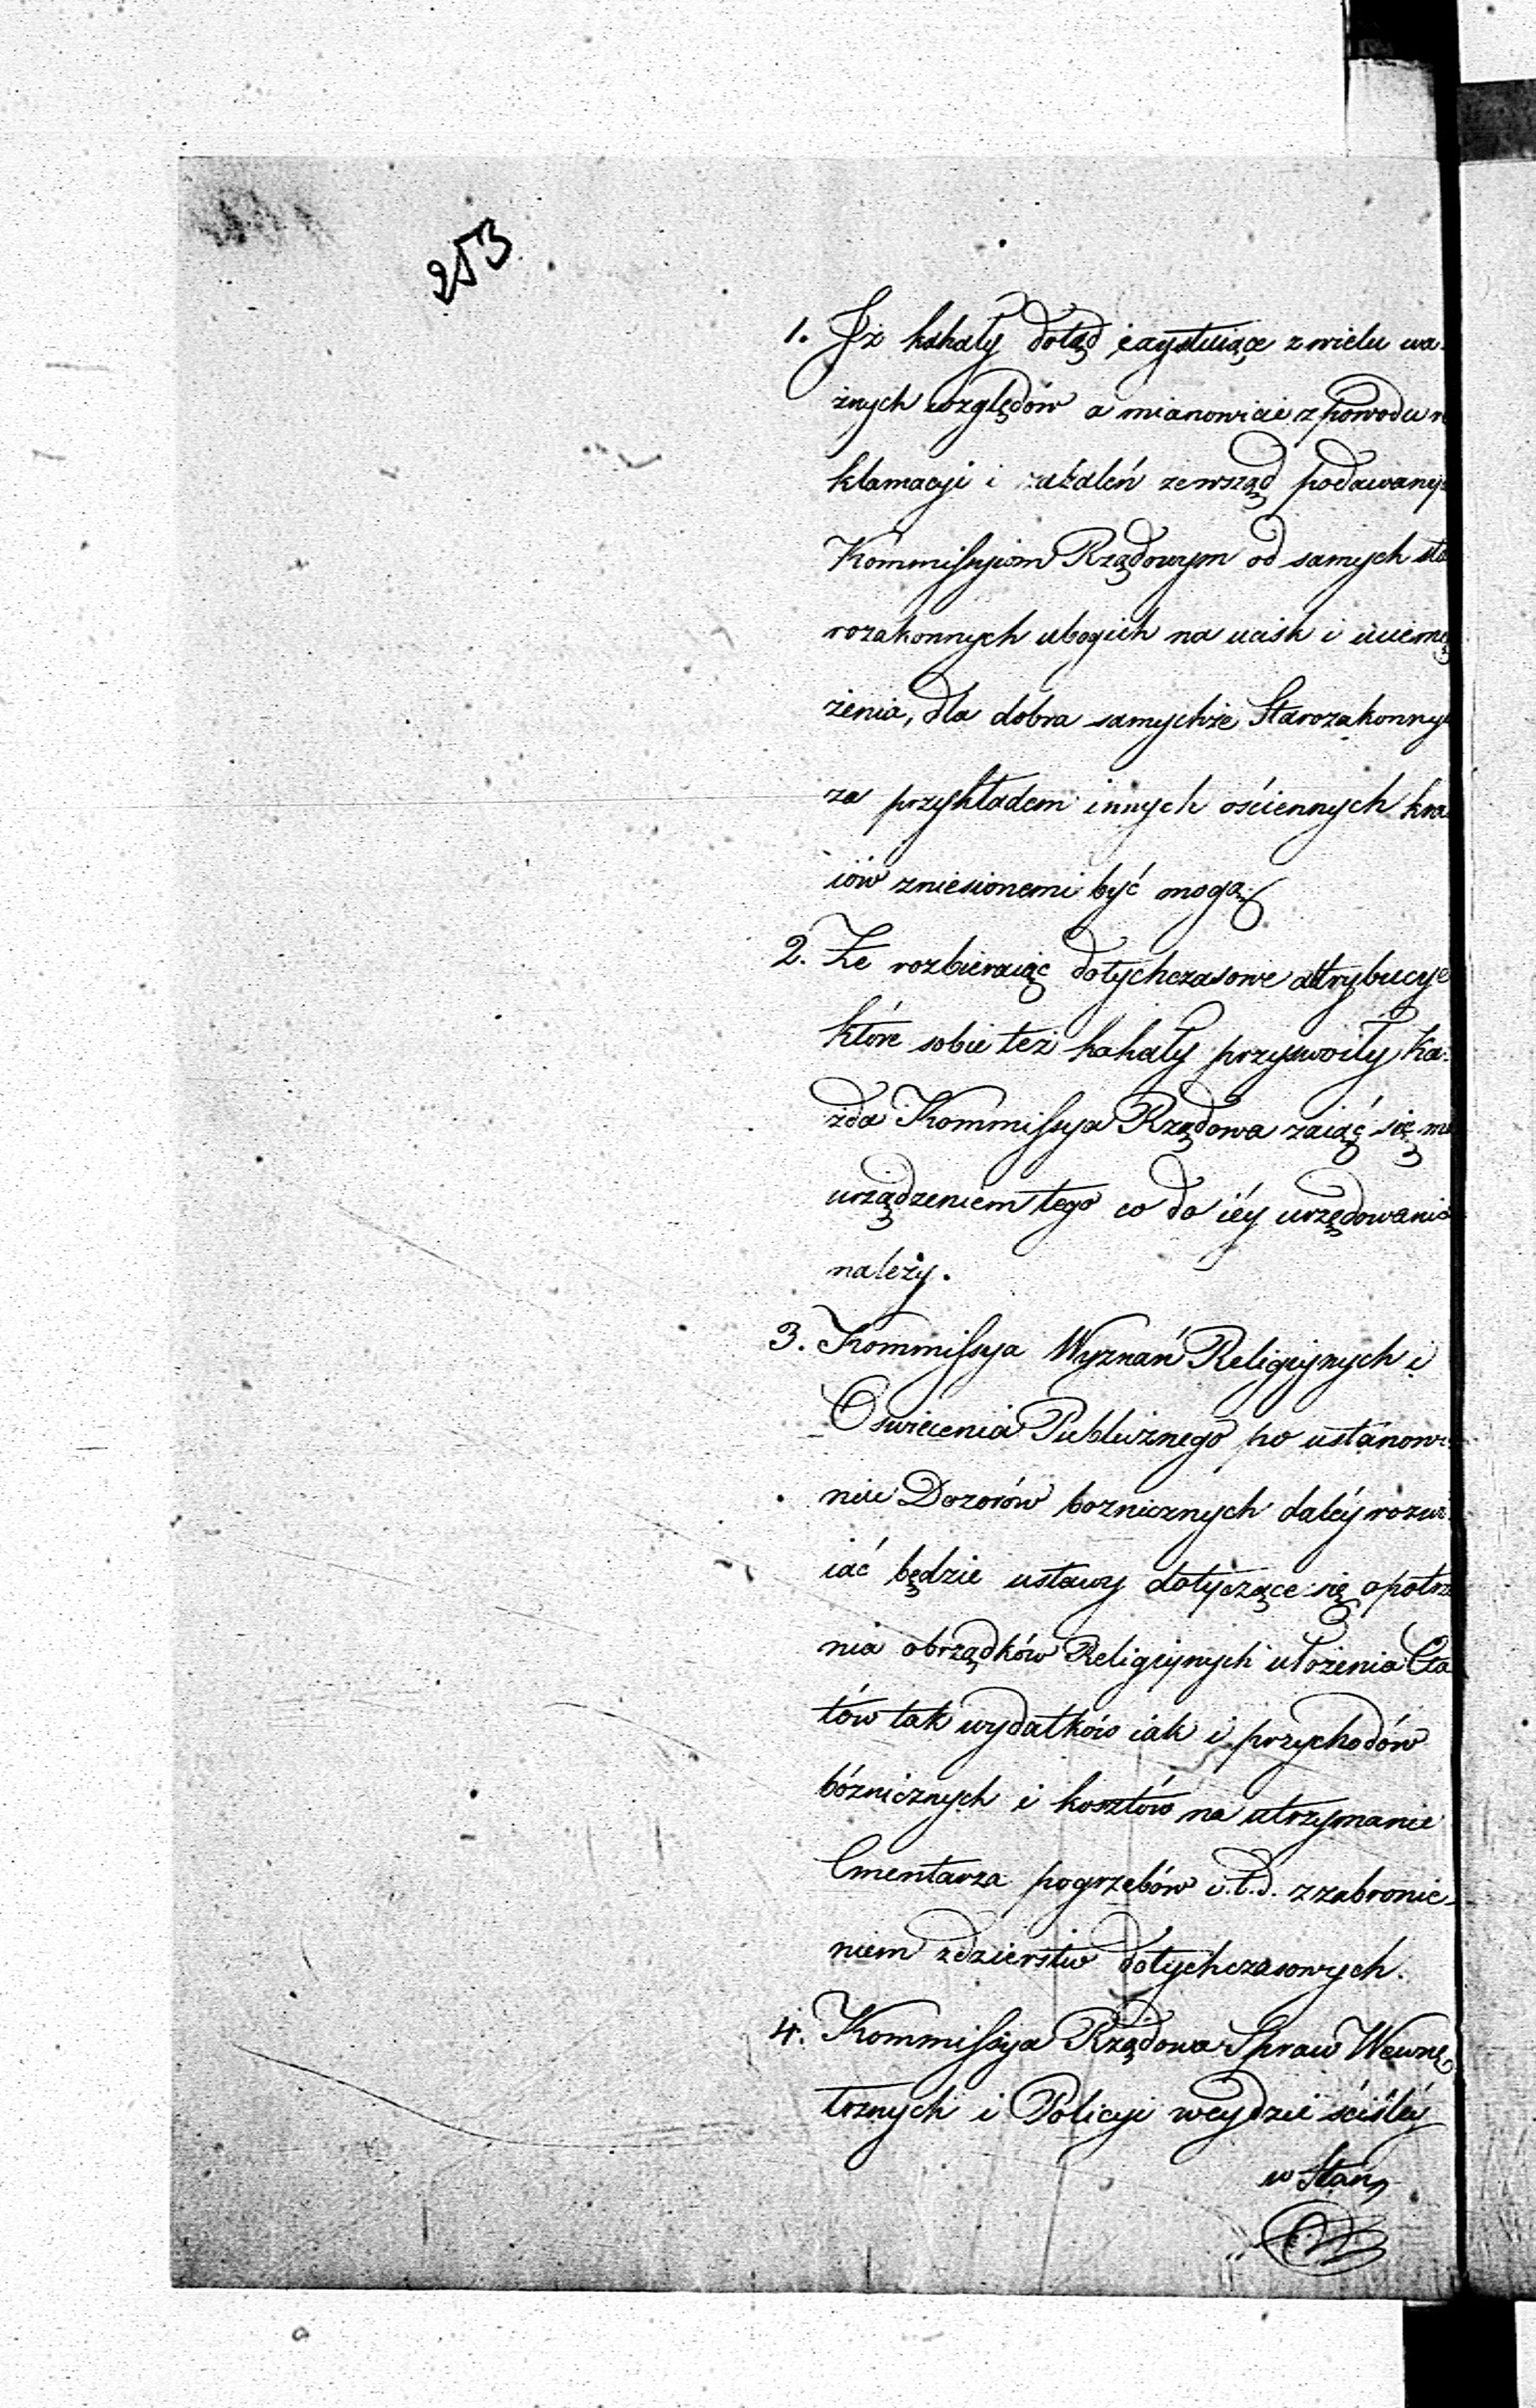 253
1. Iż kahały dotąd exystuiące z wielu wa-
żnych względów a mianowicie z powodu
klamacyi i zażaleń zewsząd podawany
Kommissyiom Rządowym od samych sta
rozakonnych ubogich na ucisk i uciemę
żenia, dla dobra samychże Starozakonny
za przykładem innych ościennych kra
iów zniesionemi być mogą.
2. Że rozbieraiąc dotychczasowe attrybucye
które sobie też kahały przyswoiły Ka-
żda Kommissya Rządowa zaiąć się ma
urządzeniem tego co do iéy urzędowania
należy.
3. Kommissya Wyznań Religijnych i
Oświecenia Publicznego po ustanowi
niu Dozorów boznicznych daléy rozwi
iać będzie ustawy dotyczące się opatrze
nia obrządków Religijnych ułożenia Eta
tów tak wydatków iak i przychodów
bóznicznych i kosztów na utrzymanie
Cmentarza pogrzebów i.t.d. z zabronie-
niem zdzierstw dotychczasowych.
4. Kommissya Rządowa Spraw Wewnę
trznych i Policyi weydzie ściśléy
w Stan